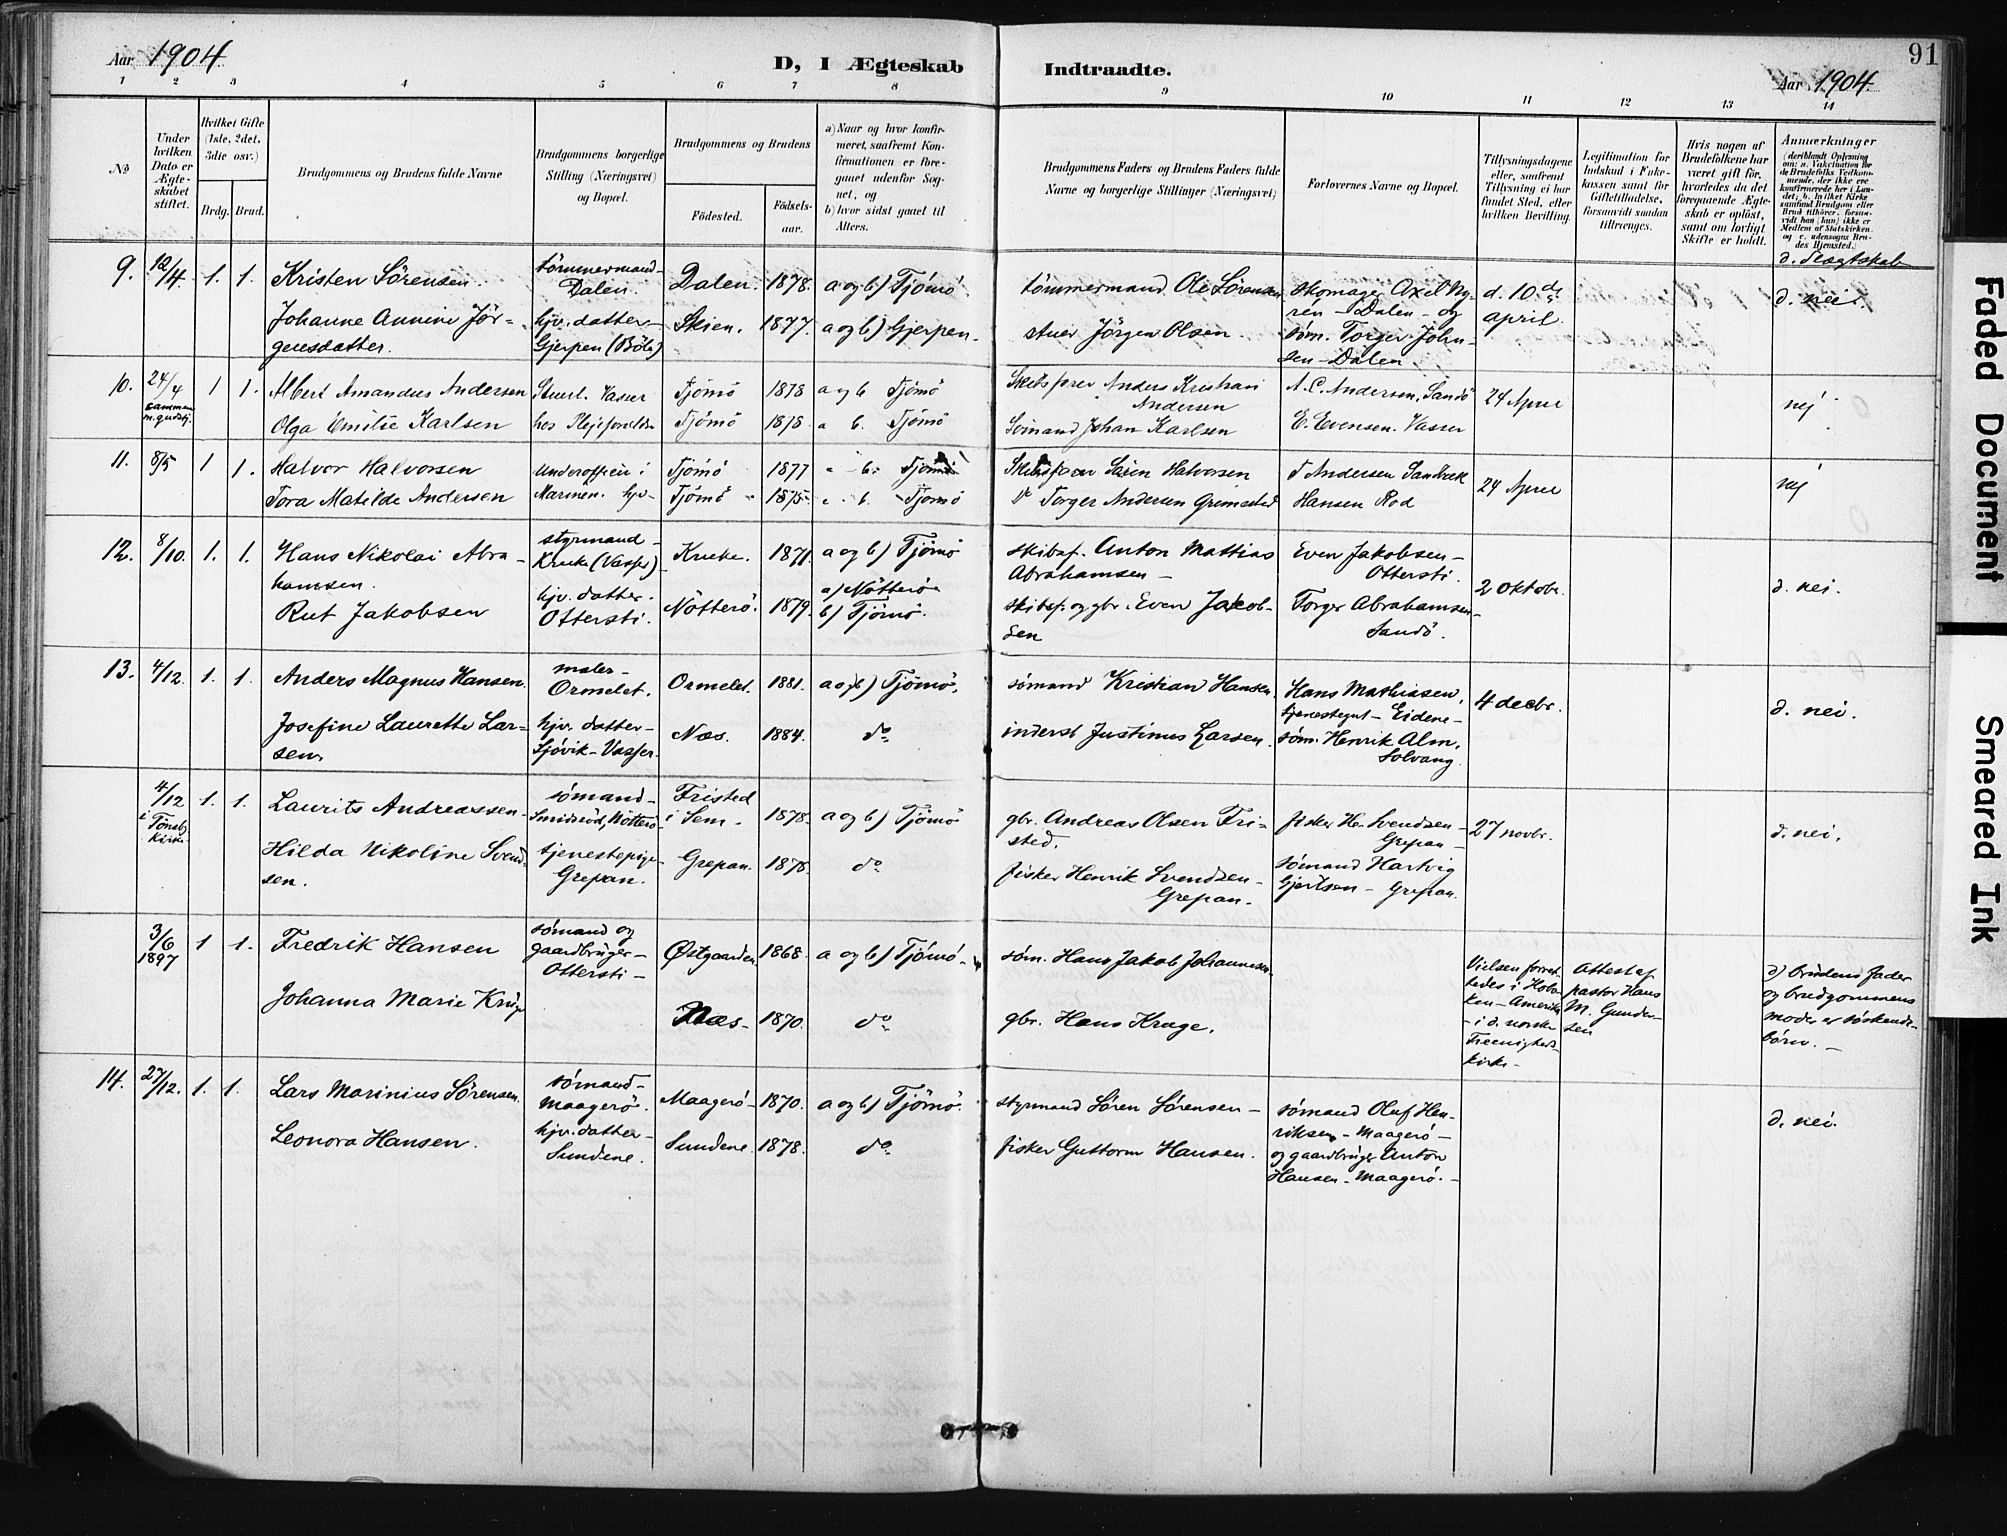 Aar 1904
D, I Ægteskab
Indtraadte.
91
Aar 1904.
1 2 3 4 5 6 7 8 9 10 11 12 13 14
No
Under hvilken Dato er Ægteskabet stiftet.
Hvilket Gifte (1ste, 2det, 3die osv.)
Brdg. Brud.
Brudgommens og Brudens fulde Navne
Brudgommens borgerlige Stilling (Næringsvei) og Bopæl.
Brudgommens og Brudens
Fødested.
Fødselsaar.
a) Naar og hvor konfirmeret, saafremt Konfirmationen er foregaaet udenfor Sognet, og
b) hvor sidst gaaet til Alters.
Brudgommens Faders og Brudens Faders fulde Navne og borgerlige Stillinger (Næringsvei)
Forlovernes Navne og Bopæl.
Tillysningsdagene eller, saafremt Tillysning ei har fundet Sted, efter hvilken Bevilling.
Legitimation for Indskud i Enkekassen samt for Giftetilladelse, forsaavidt saadan tiltrænges.
Hvis nogen af Brudefolkene har været gift før, hvorledes da det foregaaende Ægteskab er opløst, samt om lovligt Skifte er holdt.
Anmerkninger
(deriblandt Oplysning om: a. Vakcination for de Brudefolks Vedkommende, der ikke ere konfirmerede her i Landet; b. hvilket Kirkesamfund Brudgom eller Brud tilhører, forsaavidt han (hun) ikke er Medlem af Statskirken, og c. udensogns Brudes Hjemsted.)
d. Slægtskab
9. 12/4 1. 1. Kristen Sörensen. tömmermand- Dalen. Dalen. 1878. a og b) Tjömö. tömmermand Ole Sörensen skomager Axel Nyren - Dalen - og d. 10de april. d. nei.
Johanne Annine Jörgensdatter. hjv. datter - Gjerpen (Böle) Skien. 1877. a og b) Gjerpen. Jörgen Olsen söm. Torger Johnsen - Dalen
10. 24/4 sammen m. gudstj. 1 1. Albert Amandus Andersen Stuert. Vasser Tjömö 1878 a og b Tjömö Skibsfører Anders Kristian Andersen A. C. Andersen, Sandö 24 April nej
Olga Emilie Karlsen hos Plejeforeldre Tjömö 1878 a b. Tjömö Sömand Johan Karlsen E. Evensen. Vasser
11. 8/5 1 1. Halvor Halvorsen Underofficer i Marinen. Tjömö 1877 b. Tjömö Skibsfører Sören Halvorsen T Andersen Sandbæk 24 April nej
Tora Matilde Andersen hjv- Tjömö 1875. b. Tjömö Torger Andersen Grimestad Hansen Rød
12. 8/10. 1. 1. Hans Nikolai Abrahamsen. styrmand - Kruke (Vasser) Kruke. 1871. a og b) Tjömö skibsf. Anton Mattias Abrahamsen - Even Jakobsen - Ottersti. 2 oktobr. d. nei.
Rut Jakobsen hjv. datter. Ottersti. Nötterö. 1879. a) Nötterö b) Tjömö. skibsf. og gbr. Even Jakobsen Torger Abrahamsen - Sandö.
13. 4/12. 1. 1. Anders Magnus Hansen. maler - Ormelet. Ormelet. 1881. a og b) Tjömö. sömand Kristian Hansen. Hans Mathiasen, tjenestegut - Eidene - 4 decbr. d. nei.
Josefine Laurette Larsen. hjv. datter - Sjövik - Vasser. Næs. 1884. do inderst Justinus Larsen. söm. Henrik Alm, Solvang.
4/12 i Tönsb. kirke. 1. 1. Laurits Andreassen - sömand - Smidsröd, Nötterö - Fristed i Sem. 1878. a og b) Tjömö gbr. Andreas Olsen Fristed. fisker H. Svendsen - Grepan - 27 novbr. d. nei.
Hilda Nikoline Svendsen. tjenestepige - Grepan. Grepan. 1878. do fisker Henrik Svendsen - Grepan. sömand Hartvig Gjertsen - Grepan.
3/6 1897 1 1. Fredrik Hansen sömand og gaardbruger - Ottersti - Østgaarden. 1868. a og b) Tjömö. söm. Hans Jakob Johannesen Vielsen forrettedes i Hoboken - Amerika - i d. norske Treenigheds kirke - Attest af pastor Hans M. Gundersen d) brudens fader og brudgommens moder er söskendebörn. -
Johanna Marie Kruge Næs - 1870. do gbr. Hans Kruge.
14. 27/12. 1. 1. Lars Marinius Sörensen. sömand - Maagerö. Maagerö - 1870. a og b) Tjömö. styrmand Sören Sörensen - sömand Oluf Henriksen - Maagerö - d. nei.
Leonora Hansen. hjv. datter - Sundene. Sundene. 1878. do fisker Guttorm Hansen. og gaardbruger Anton Hansen - Maagerö. -
Faded Document
Smeared Ink